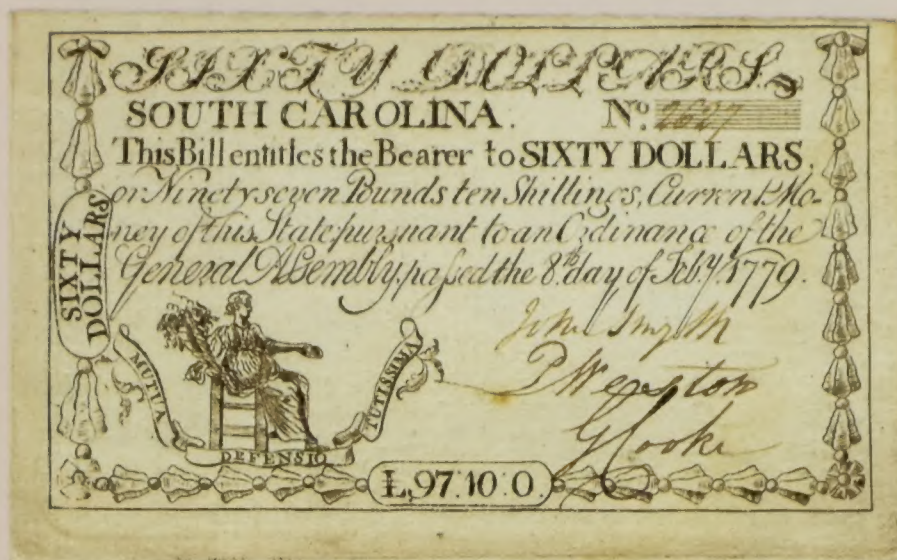 SIXTY DOLLARS
SOUTH CAROLINA. No. 2627
This Bill entitles the Bearer to SIXTY DOLLARS,
or Ninety seven Pounds ten Shillings, Current Mo-
ney of this State pursuant to an Ordinance of the
General Assembly, passed the 8th day of Feby. 1779.
SIXTY
DOLLARS
MUTUA
DEFENSIO
TUTISSIMA
John Smyth
P Weston
G Cooke
£,97:10:0.